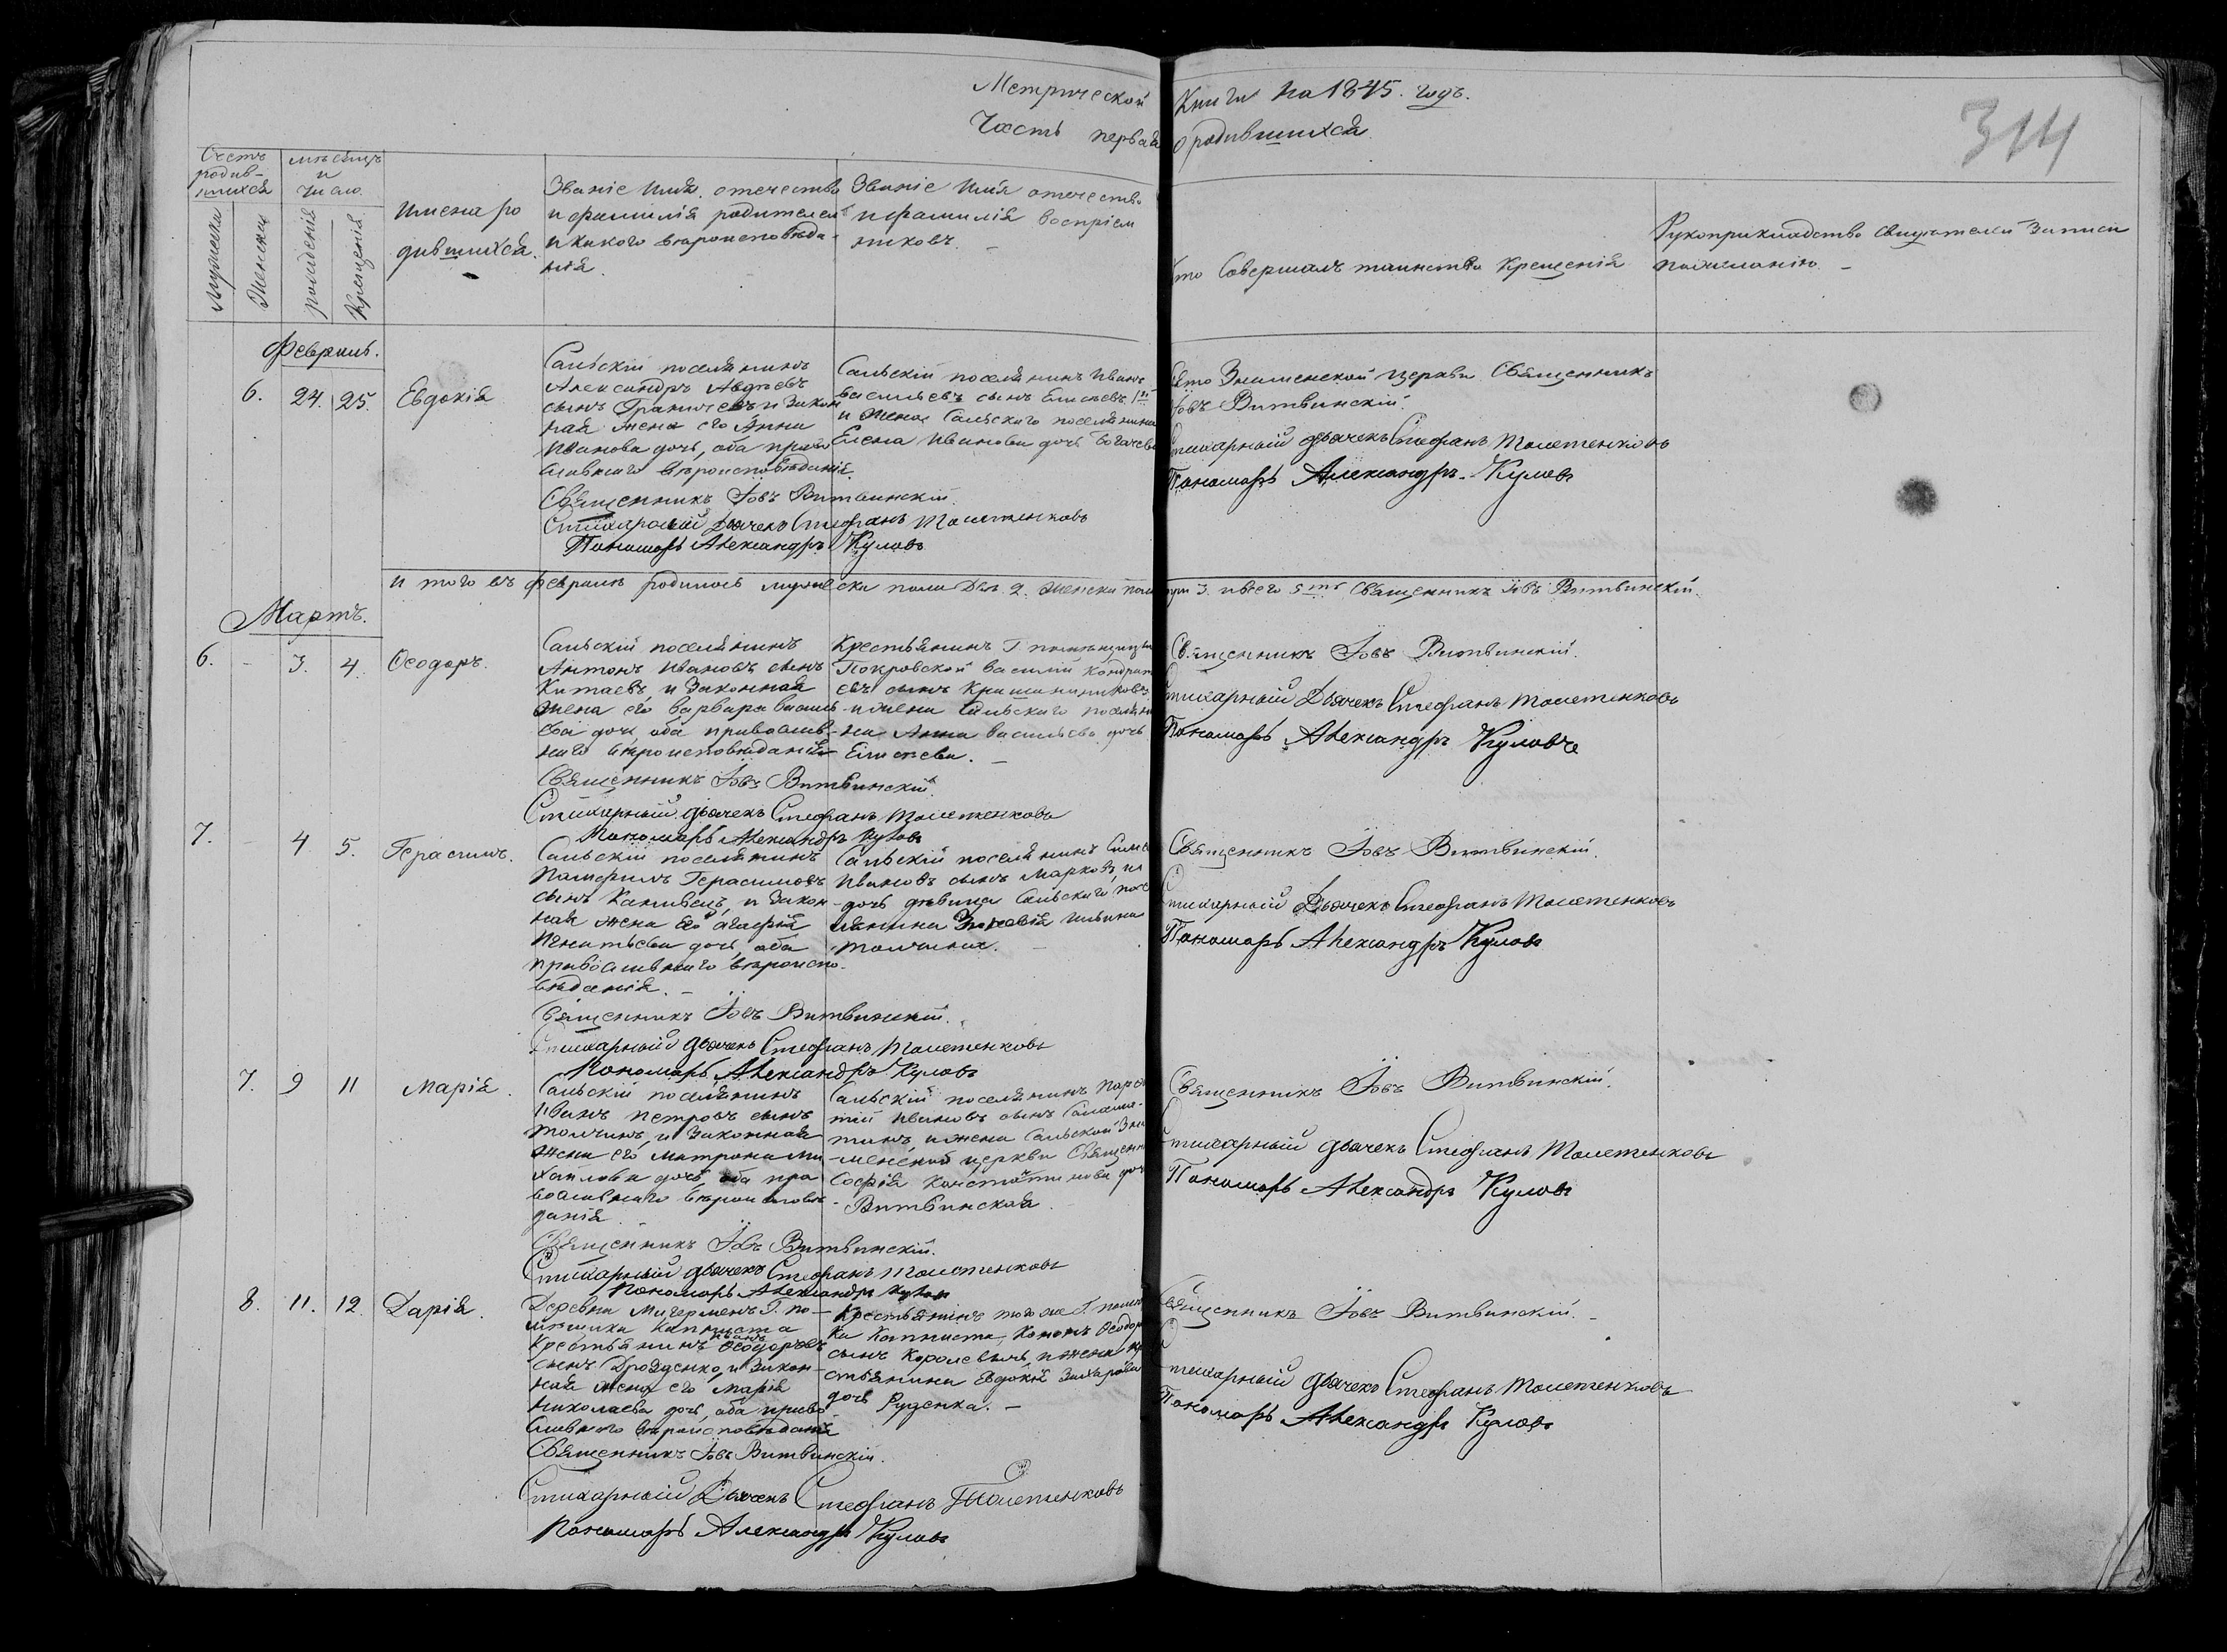 Метрической Книги на 1845. годъ.
Часть первая о родившихся.
314
Счетъ родив-шихся
мѣсяцъ и число.
Мужеска
Женска
рожденія
Крещенія
Имена ро
дившихся.
Званіе Имя. отечество
и фамилія родителей
и какого вѣроисповѣда-
нія.
Званіе Имя отечество
и фамилія воспріем
никовъ. –
Кто Совершалъ таинство Крещенія
Рукоприкладство свидѣтелей записи
по желанію. –
Февраль.
6. 24. 25. Евдокія
Сальскій поселянинъ
Александръ Авдѣевъ
сынъ и закон
ная жена его Анна
Иванова дочь, оба право
славнаго вѣроисповѣданія.
Священникъ Іовъ Витвинскій.
Стихарный Дьячекъ Стефанъ
Пономарь Александръ Куловъ
Сальскій поселянинъ Иванъ
васильевъ сынъ Елисѣевъ 1й
и Жена Сальскаго поселянина
Елена Иванова дочь
Знаменской церкви Священникъ
Іовъ Витвинскій.
Стихарный дьячекъ Стефанъ
Пономарь Александръ Куловъ
И того въ февралѣ родилось мужеска пола два 2. женска пола три 3. и всего 5ть Священникъ Іовъ Витвинскій.
Мартъ.
6. – 3. 4. Ѳеодоръ.
Сальскій поселянинъ
Антонъ Ивановъ сынъ
Китаевъ, и Законная
жена его варвара василь-
ева дочь, оба православ-
наго вѣроисповѣданія
Священникъ Іовъ Витвинскій.
Стихарный дьячекъ Стефанъ
Пономарь Александръ Куловъ
Крестьянинъ Г помѣщицы
Покровской василій Кондрать
евъ сынъ
и жена Сальскаго поселяни
на Анна васильева дочь
Елисѣева. –
Священникъ Іовъ Витвинскій.
Стихарный Дьячекъ Стефанъ
Пономарь Александръ Куловъ
7. – 4 5. Герасимъ.
Сальскій поселянинъ
Памфилъ Герасимовъ
сынъ и закон
ная жена его Агафія
Игнатьева дочь, оба
православнаго вѣроиспо-
вѣданія. –
Священникъ Іовъ Витвинскій.
Стихарный дьячекъ Стефанъ
Пономарь Александръ Куловъ
Сальскій поселянинъ
Ивановъ сынъ Марковъ, и
дочь дѣвица Сальскаго посе
лянина Ильина
Толчина. –
Священникъ Іовъ Витвинскій.
Стихарный Дьячекъ Стефанъ
Пономарь Александръ Куловъ
7. 9 11 Марія.
Сальскій поселянинъ
Иванъ Петровъ сынъ
Толчинъ, и Законная
жена его Матрона Ми
хайлова дочь, оба пра
вославнаго вѣроисповѣ-
данія
Священникъ Іовъ Витвинскій.
Стихарный дьячекъ Стефанъ
Пономарь Александръ Куловъ
Сальскій поселянинъ
Ивановъ сынъ
и жена Сальской Зна
менской церкви Священ
Софія Константинова дочь
Витвинская.
Священникъ Іовъ Витвинскій.
Стихарный дьячекъ Стефанъ
Пономарь Александръ Куловъ
8. 11. 12. Дарія.
Деревни Г. по-
мѣщика Капниста
Крестьянинъ Иванъ Ѳеодоровъ
сынъ Дрозденко, и закон-
ная жена его Марія
Николаева дочь, оба право
славнаго вѣроисповѣданія
Священникъ Іовъ Витвинскій.
Стихарный Дьячекъ Стефанъ
Пономарь Александръ Куловъ
Крестьянинъ того же Г. помѣщи
ка Капниста, Кононъ Ѳеодоровъ
сынъ и жена кре
стьянина Евдокія Захарова
дочь Руденка. –
Священникъ Іовъ Витвинскій. –
Стихарный дьячекъ Стефанъ
Пономарь Александръ Куловъ